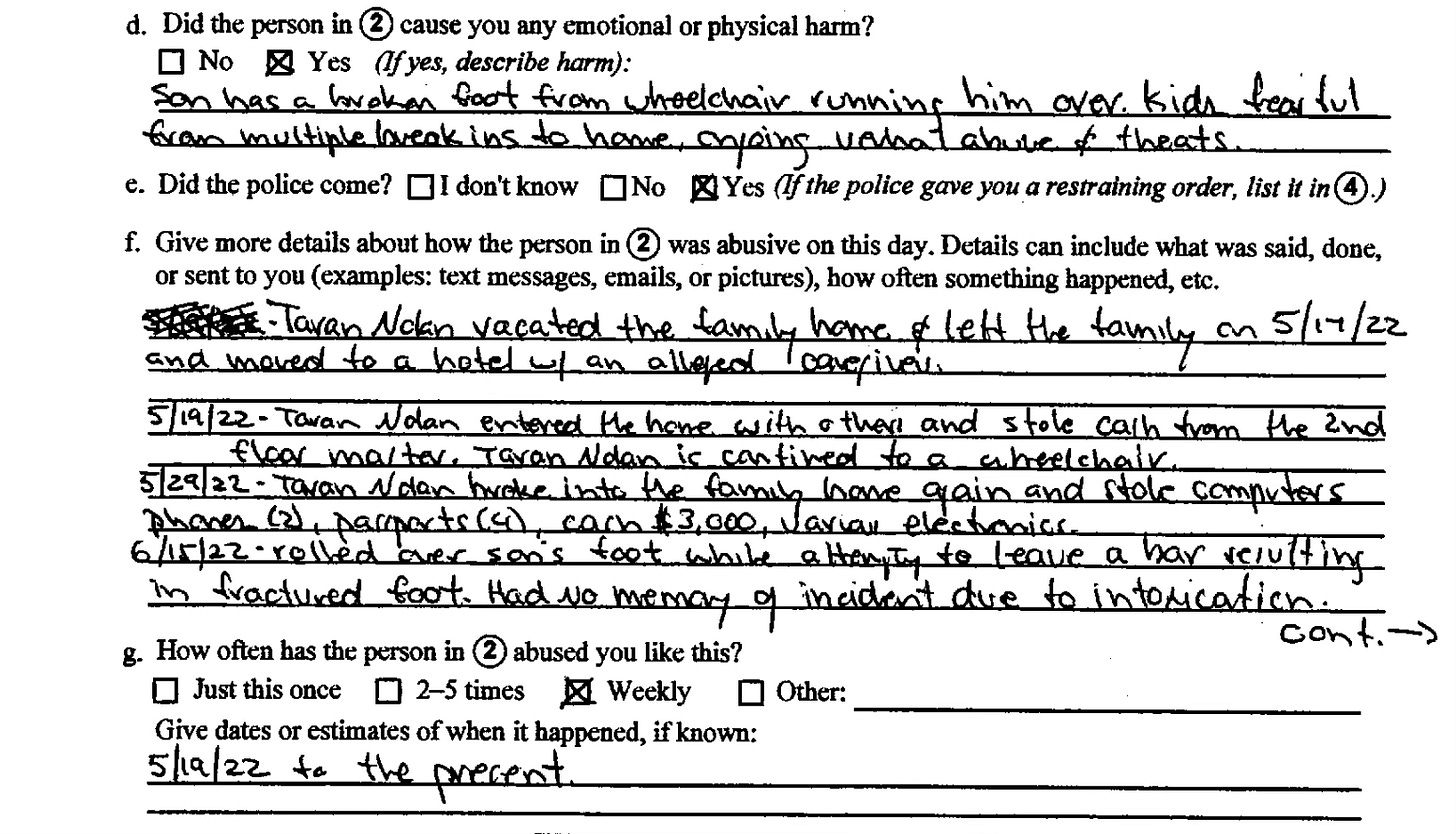 d. Did the person in ② cause you any emotional or physical harm?
☐ No ☒ Yes (If yes, describe harm):
Son has a broken foot from wheelchair running him over. Kids fearful
from multiple break ins to home, ongoing verbal abuse & theats.
e. Did the police come? ☐ I don't know ☐ No ☒ Yes (If the police gave you a restraining order, list it in ④.)
f. Give more details about how the person in ② was abusive on this day. Details can include what was said, done,
or sent to you (examples: text messages, emails, or pictures), how often something happened, etc.
- Tavan Nolan vacated the family home & left the family on 5/17/22
and moved to a hotel w/ an alleged caregiver.
5/19/22 - Tavan Nolan entered the home with others and stole cash from the 2nd
floor master. Tavan Nolan is confined to a wheelchair.
5/29/22 - Tavan Nolan broke into the family home again and stole computers
phones (2), passports (4), cash $3,000, various electronics.
6/15/22 - rolled over son's foot while attempting to leave a bar resulting
in fractured foot. Had no memory of incident due to intoxication.
cont. →
g. How often has the person in ② abused you like this?
☐ Just this once ☐ 2–5 times ☒ Weekly ☐ Other:
Give dates or estimates of when it happened, if known:
5/19/22 to the present.